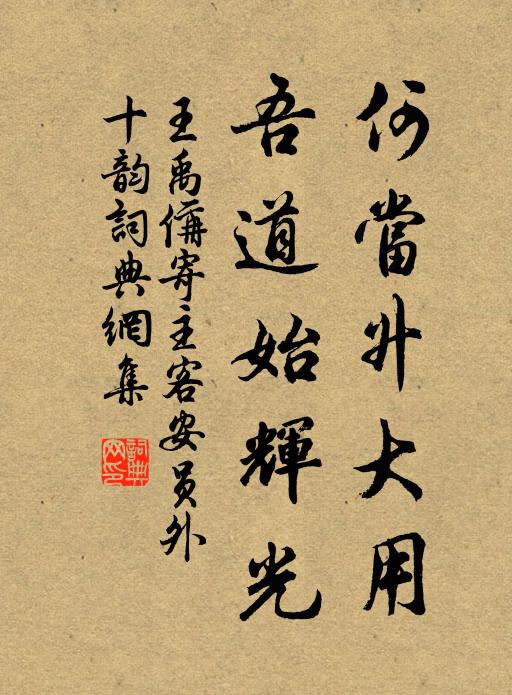 何當升大用
吾道始輝光
王禹偁寄主客安員外
十韵詞典網集
詞典網印